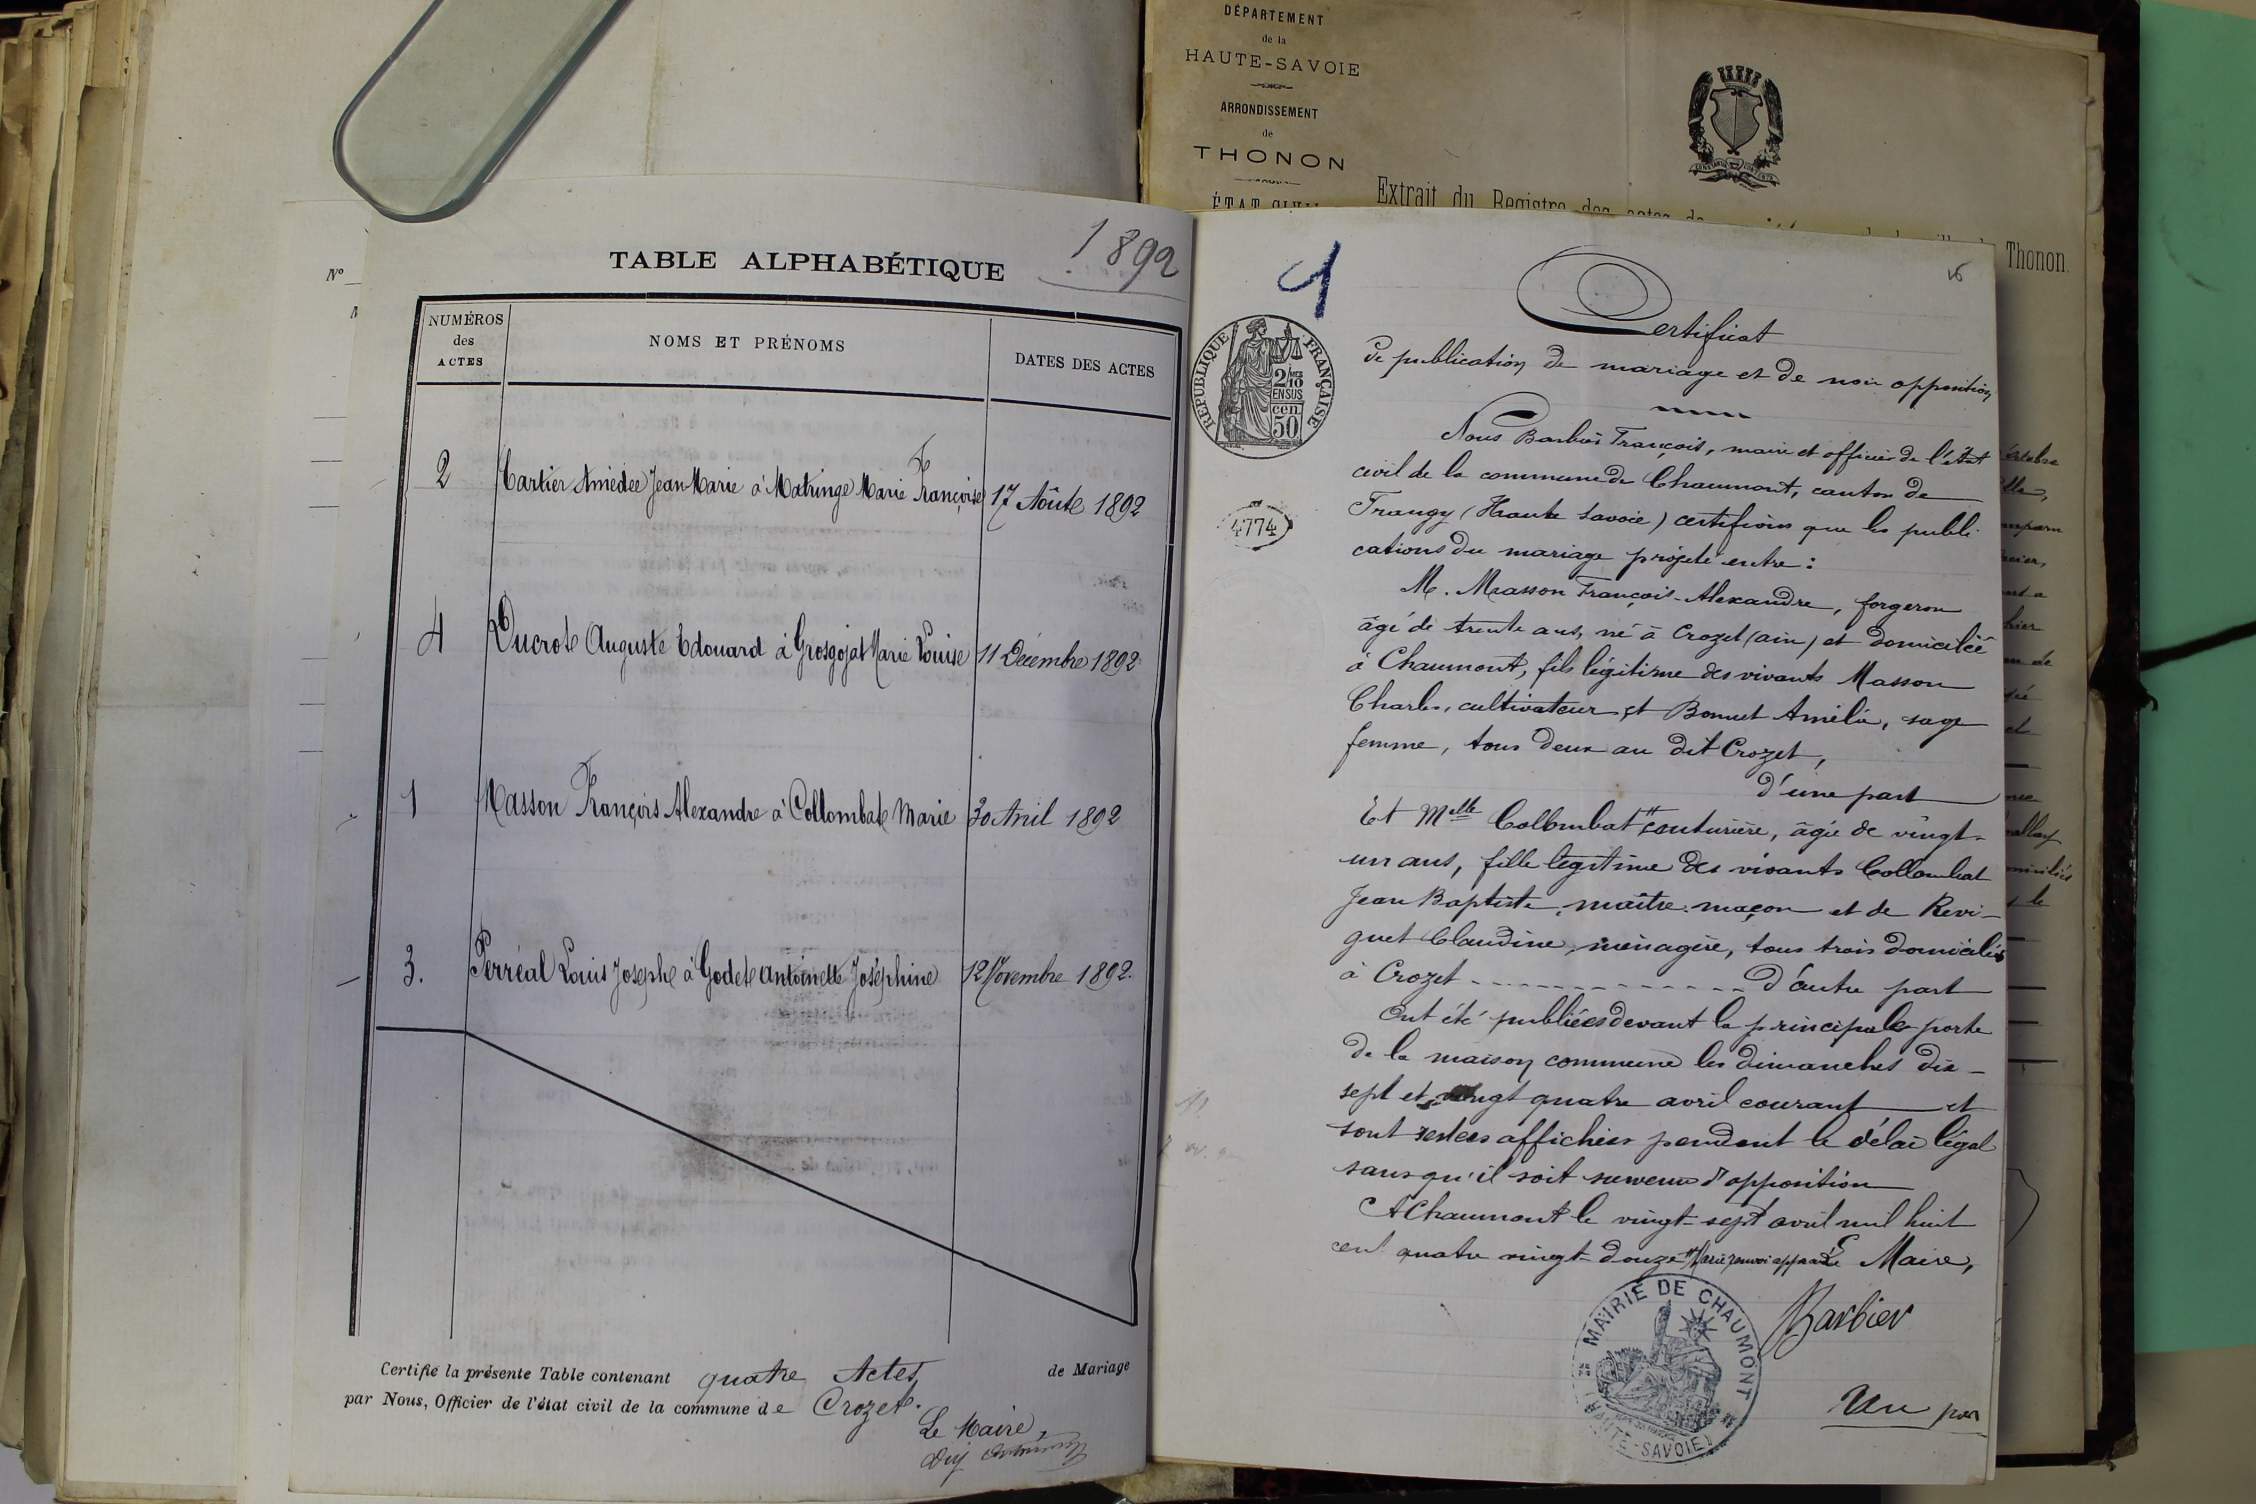 DÉPARTEMENT
de la
HAUTE-SAVOIE
ARRONDISSEMENT
de
THONON
ÉTAT CIVIL
Extrait du Registre des actes de
Thonon.
1892
TABLE ALPHABÉTIQUE
NUMÉROS
des
ACTES
NOMS ET PRÉNOMS
DATES DES ACTES
2 Cartier Amédée Jean Marie à Matringe Marie Françoise 17 Aôute 1892
4 Ducrote Auguste Edouard à Grosgojat Marie Louise 11 Décembre 1892
1 Masson François Alexandre à Collombate Marie 30 Avril 1892
3. Perréal Louis Josephe à Godete Antoinette Joséphine 12 Novembre 1892.
Certifie la présente Table contenant quatre Actes, de Mariage
par Nous, Officier de l'état civil de la commune de Crozete.
Le Maire,
Nº
4
REPUBLIQUE FRANÇAISE
2/10
MES
EN SUS
cen.
50
4774
Certificat
de publication de mariage et de non opposition
Nous Barbier François, maire et officier de l'état
civil de la commune de Chaumont, canton de
Frangy (Haute Savoie) certifions que les publi-
cations du mariage projeté entre :
M. Masson François-Alexandre, forgeron
âgé de trente ans, né à Crozet (ain) et domicilié
à Chaumont, fils légitime des vivants Masson
Charles, cultivateur et Bonnet Amélie, sage
femme, tous deux au dit Crozet,
d'une part
Et Melle Collombat # couturière, âgée de vingt-
un ans, fille légitime des vivants Collombat
Jean Baptiste, maître-maçon et de Revi-
guet Claudine, ménagère, tous trois domiciliés
à Crozet - - - - - - - - - - - - - d'autre part
Ont été publiées devant la principale porte
de la maison commune les dimanches dix-
sept et vingt quatre avril courant et
sont restées affichées pendant le délai légal
sans qu'il soit survenu d'opposition
A Chaumont le vingt-sept avril mil huit
cent quatre vingt-douze # Marie renvoi approuvé Le Maire,
Barbier
MAIRIE DE CHAUMONT
HTE-SAVOIE